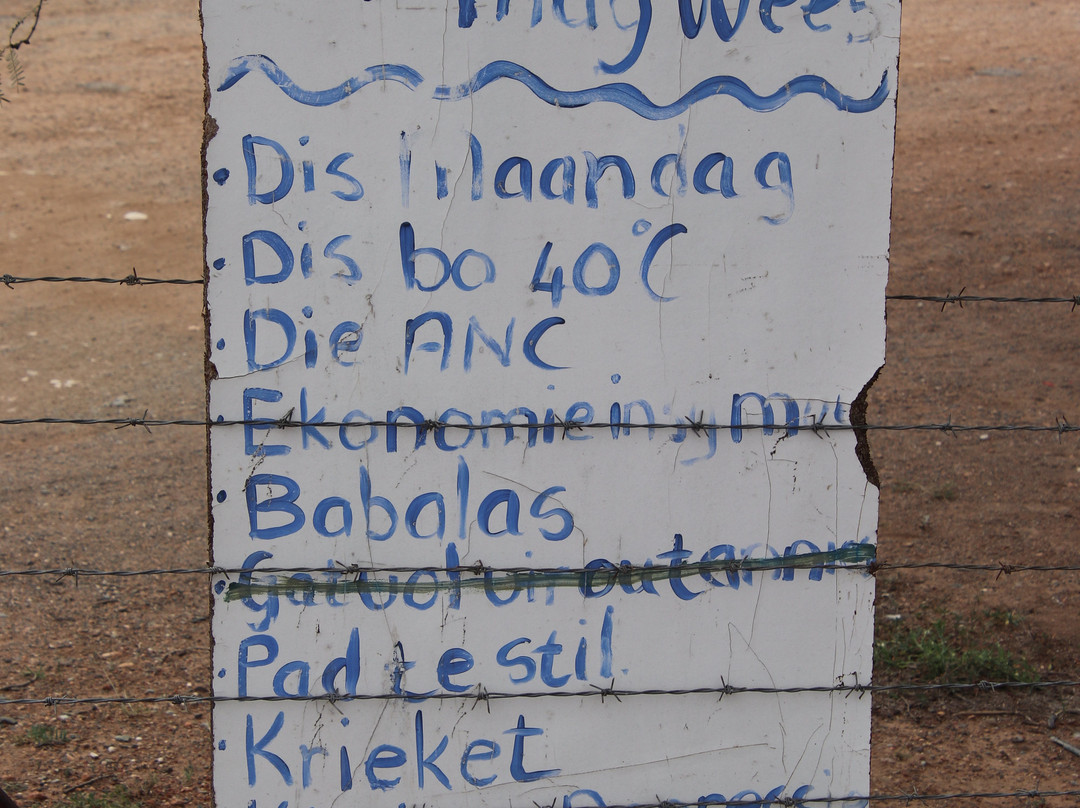 mag wees
• Dis Maandag
• Dis bo 40°C
• Die ANC
• Ekonomie in sy m
• Babalas
• Gatvol vir
• Pad te stil.
• Krieket